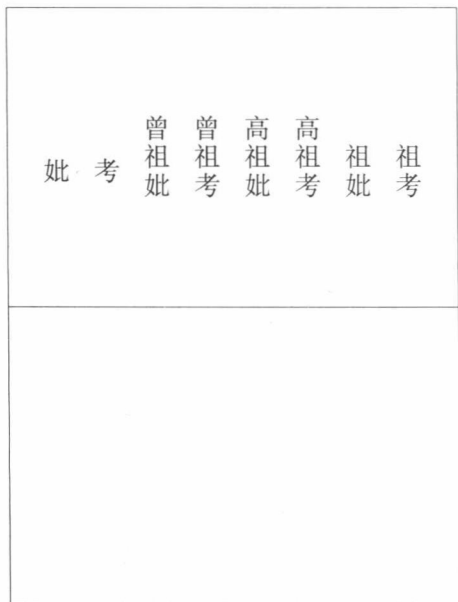 祖考
祖妣
高祖考
高祖妣
曾祖考
曾祖妣
考
妣